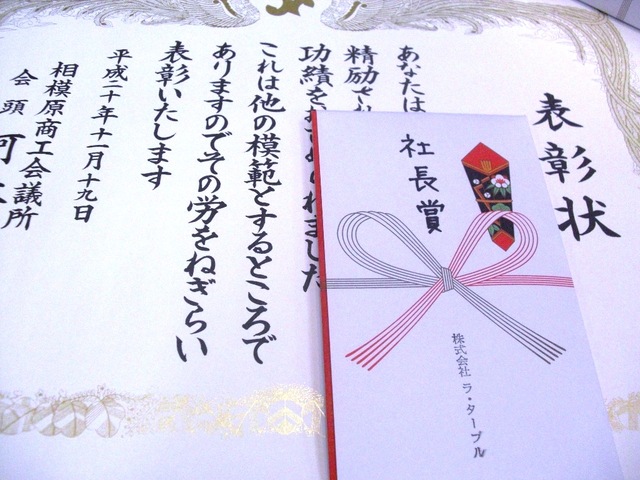 表彰状
あなたは
精励され
功績を
ました
これは他の模範とするところで
ありますのでその労をねぎらい
表彰いたします
平成二十年十一月十九日
相模原商工会議所
会頭
社長賞
株式会社 ラ・ターブル